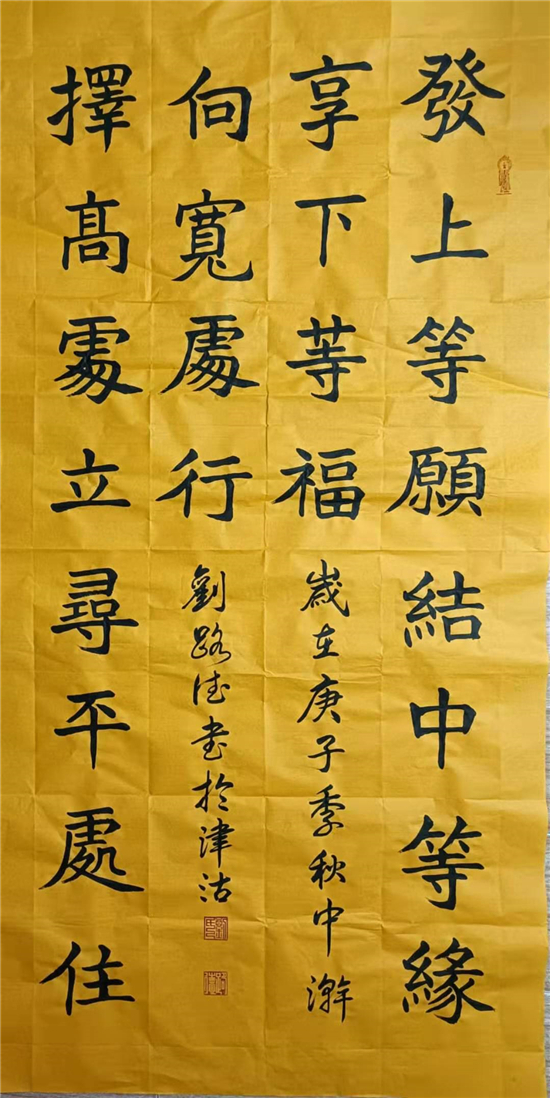 發上等願結中等緣
享下等福
歲在庚子季秋中澣
擇髙處立尋平處住
向寬處行
劉路德書於津沽